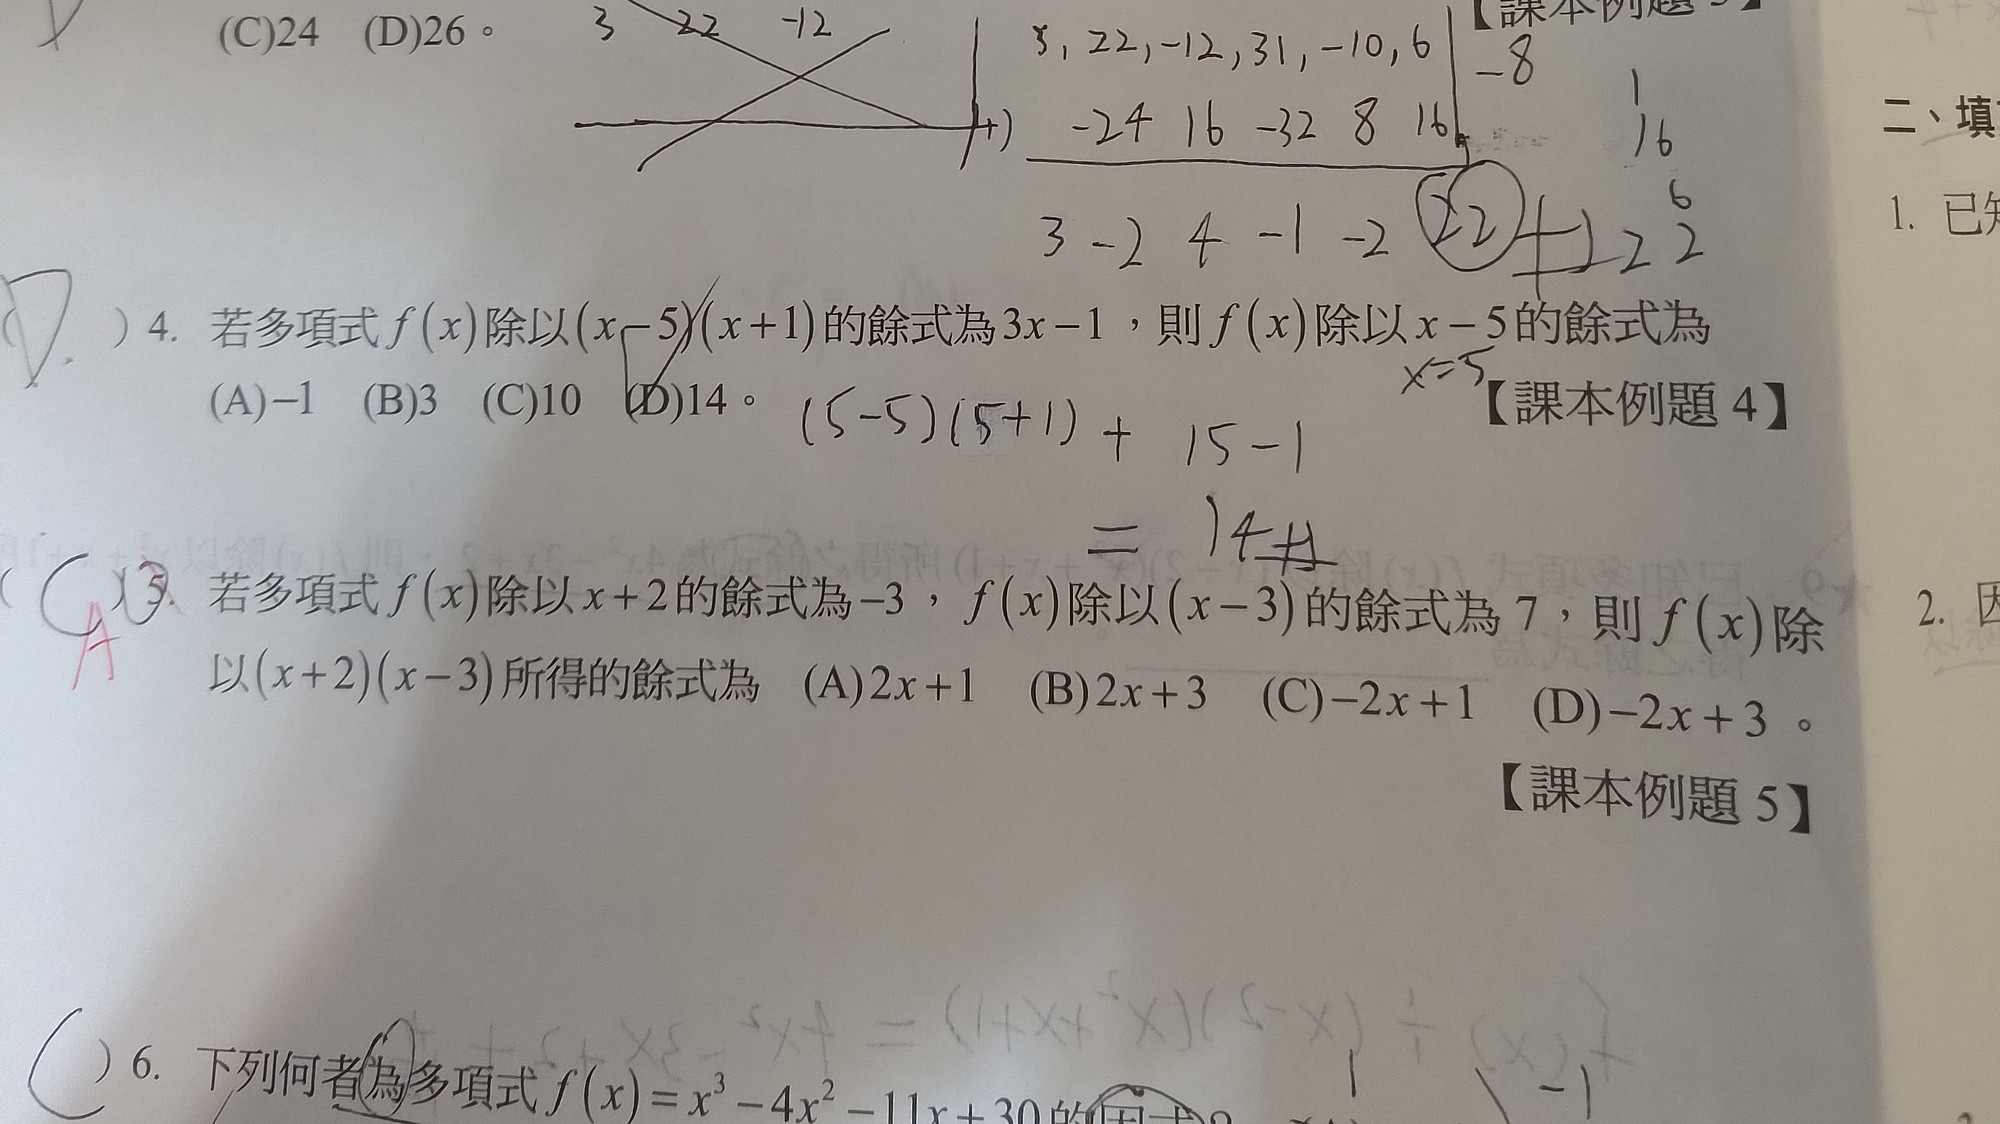 (C)24 (D)26。
3 22 -12
【課本例題 3】
3, 22, -12, 31, -10, 6
-8
+) -24 16 -32 8 16
3 -2 4 -1 -2 22
1
16
6
22
二、填
1. 已知
D.
( ) 4. 若多項式 f(x) 除以 (x−5)(x+1) 的餘式為 3x−1，則 f(x) 除以 x−5 的餘式為
x=5
(A)−1 (B)3 (C)10 (D)14。
【課本例題 4】
(5-5)(5+1) + 15-1
= 14
( C ) 5. 若多項式 f(x) 除以 x+2 的餘式為 −3，f(x) 除以 (x−3) 的餘式為 7，則 f(x) 除
A
以 (x+2)(x−3) 所得的餘式為 (A)2x+1 (B)2x+3 (C)−2x+1 (D)−2x+3。
【課本例題 5】
2. 因
( ) 6. 下列何者為多項式 f(x)=x³−4x²−11x+30 的因式？
1
-1